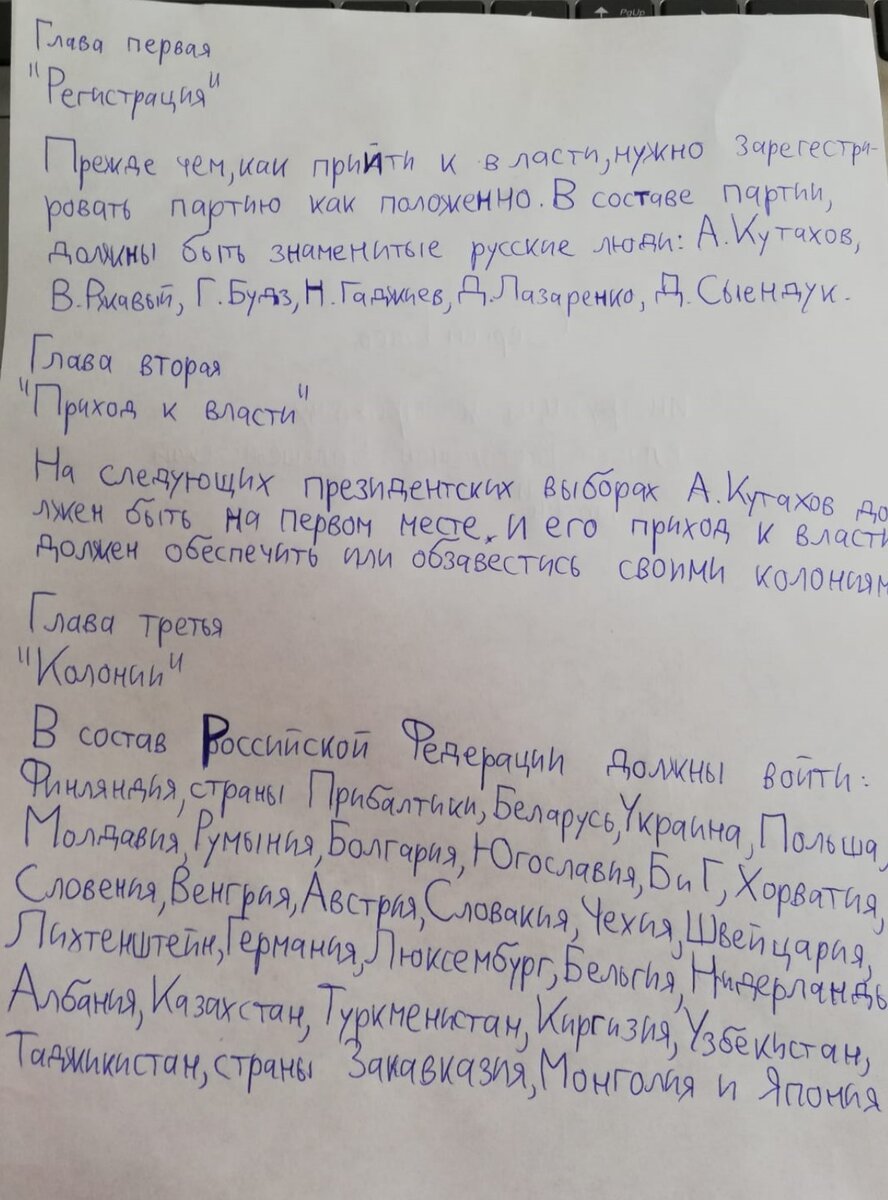 PgUp
Глава первая
"Регистрация"
Прежде чем, как прийти к власти, нужно зарегестри-
ровать партию как положенно. В составе партии,
должны быть знаменитые русские люди: А.Кутахов,
В.Ржавый, Г.Будз, Н.Гаджиев, Д.Лазаренко, Д.Сыендук.
Глава вторая
"Приход к власти"
На следующих президентских выборах А.Кутахов до
лжен быть на первом месте. И его приход к власти
должен обеспечить или обзавестись своими колониям
Глава третья
"Колонии"
В состав Российской Федерации должны войти:
Финляндия, страны Прибалтики, Беларусь, Украина, Польша,
Молдавия, Румыния, Болгария, Югославия, БиГ, Хорватия,
Словения, Венгрия, Австрия, Словакия, Чехия, Швейцария,
Лихтенштейн, Германия, Люксембург, Бельгия, Нидерланды
Албания, Казахстан, Туркменистан, Киргизия, Узбекистан,
Таджикистан, страны Закавказия, Монголия и Япония